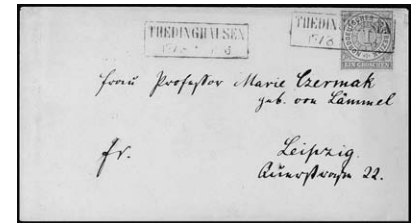 THEDINGHAUSEN
THEDIN
EIN GROSCHEN
Frau Professor Marie Czermak
geb. von Lämmel
fr.
Leipzig.
Querstrasse 22.